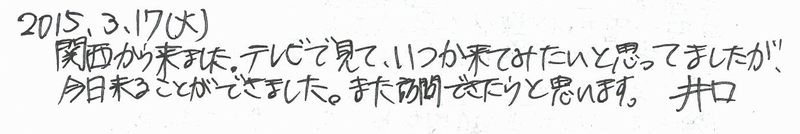 2015.3.17(火)
関西から来ました。テレビで見て、いつか来てみたいと思ってましたが、
今日来ることができました。また訪問できたらと思います。 井口